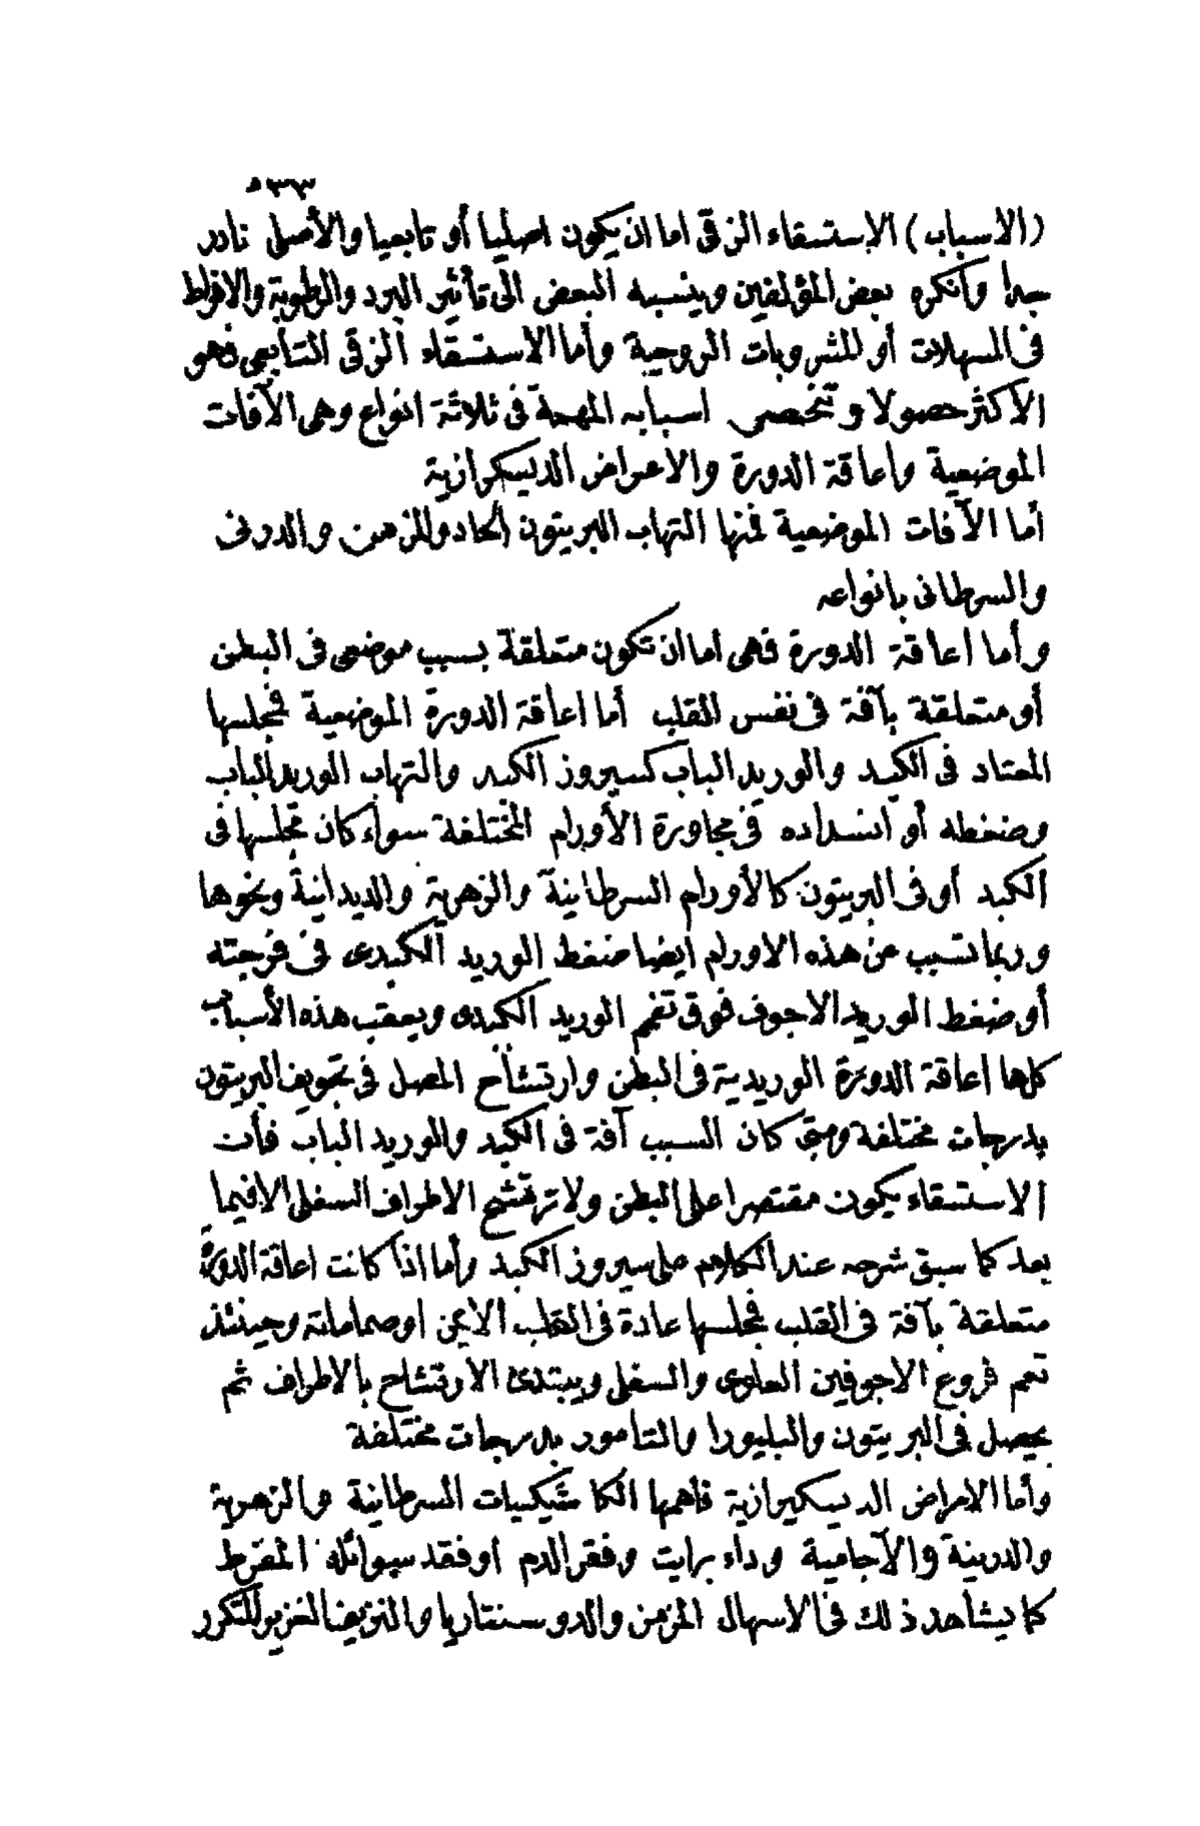 ٥٣٣
(الاسباب) الاستسقاء الزقى اما ان يكون اصليا أو تابعيا والأصلى نادر
جدا وأنكره بعض المؤلفين وينسبه البعض الى تأثير البرد والرطوبة والافراط
فى المسهلات أو المشروبات الروحية وأما الاستسقاء الزقى التابعى فهو
الاكثر حصولا وتنحصر اسبابه المهمة فى ثلاثة انواع وهى الآفات
الموضعية واعاقة الدورة والاعراض الديسكرازية
أما الآفات الموضعية فمنها التهاب البريتون الحاد والمزمن والدرنى
والسرطانى بانواعه
وأما اعاقة الدورة فهى اما ان تكون متعلقة بسبب موضعى فى البطن
أو متعلقة بآفة فى نفس القلب أما اعاقة الدورة الموضعية فمجلسها
المعتاد فى الكبد والوريد الباب كسيروز الكبد والتهاب الوريد الباب
وضغطه أو انسداده فى مجاورة الأورام المختلفة سواء كان مجلسها فى
الكبد أو فى البريتون كالأورام السرطانية والزهرية والديدانية ونحوها
وربما تسبب عن هذه الاورام ايضا ضغط الوريد الكبدى فى فرجته
أو ضغط الوريد الاجوف فوق تفمم الوريد الكبدى ويعقب هذه الأسباب
كلها اعاقة الدورة الوريدية فى البطن وارتشاح المصل فى تجويف البريتون
بدرجات مختلفة ومتى كان السبب آفة فى الكبد والوريد الباب فأن
الاستسقاء يكون مقتصرا على البطن ولا ترتشح الاطراف السفلى الا فيما
بعد كما سبق شرحه عند الكلام على سيروز الكبد وأما اذا كانت اعاقة الدورة
متعلقة بآفة فى القلب فمجلسها عادة فى القلب الايمن او صماماته وحينئذ
تعم فروع الاجوفين العلوى والسفلى ويبتدئ الارتشاح بالاطراف ثم
يحصل فى البريتون والبليورا والتامور بدرجات مختلفة
وأما الامراض الديسكيرازية فاهمها الكاشيكسيات السرطانية والزهرية
والدرنية والآجامية وداء برايت وفقر الدم او فقد سوائله المفرط
كما يشاهد ذلك فى الاسهال المزمن والدوسنتاريا والنزيف الغزير المتكرر